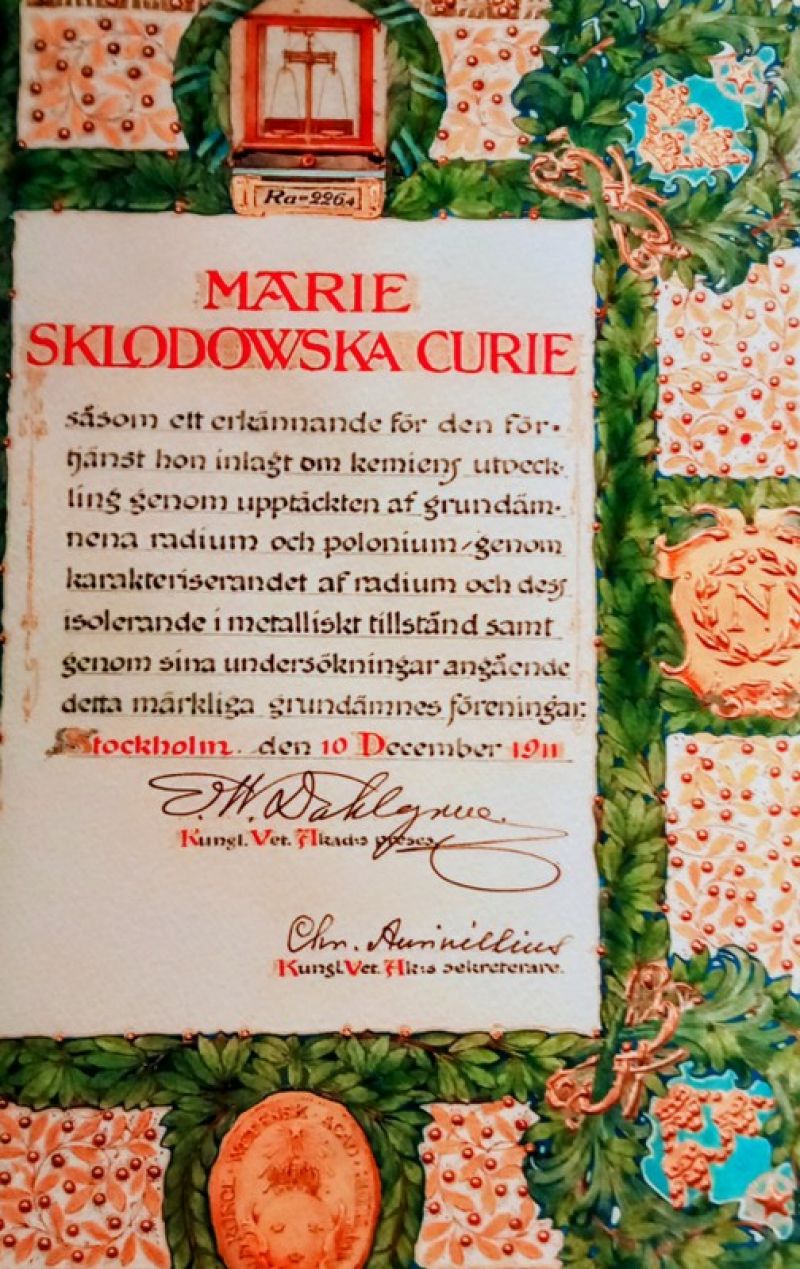 Ra=226,4
MARIE
SKLODOWSKA CURIE
såsom ett erkännande för den för-
tjänst hon inlagt om kemiens utveck-
ling genom upptäckten af grundäm-
nena radium och polonium, genom
karakteriserandet af radium och dess
isolerande i metalliskt tillstånd samt
genom sina undersökningar angående
detta märkliga grundämnes föreningar.
Stockholm. den 10 December 1911
E.W. Dahlgren.
Kungl. Vet. Akad:s preses.
Chr. Aurivillius
Kungl. Vet. Ak:s sekreterare.
N
ACAD.